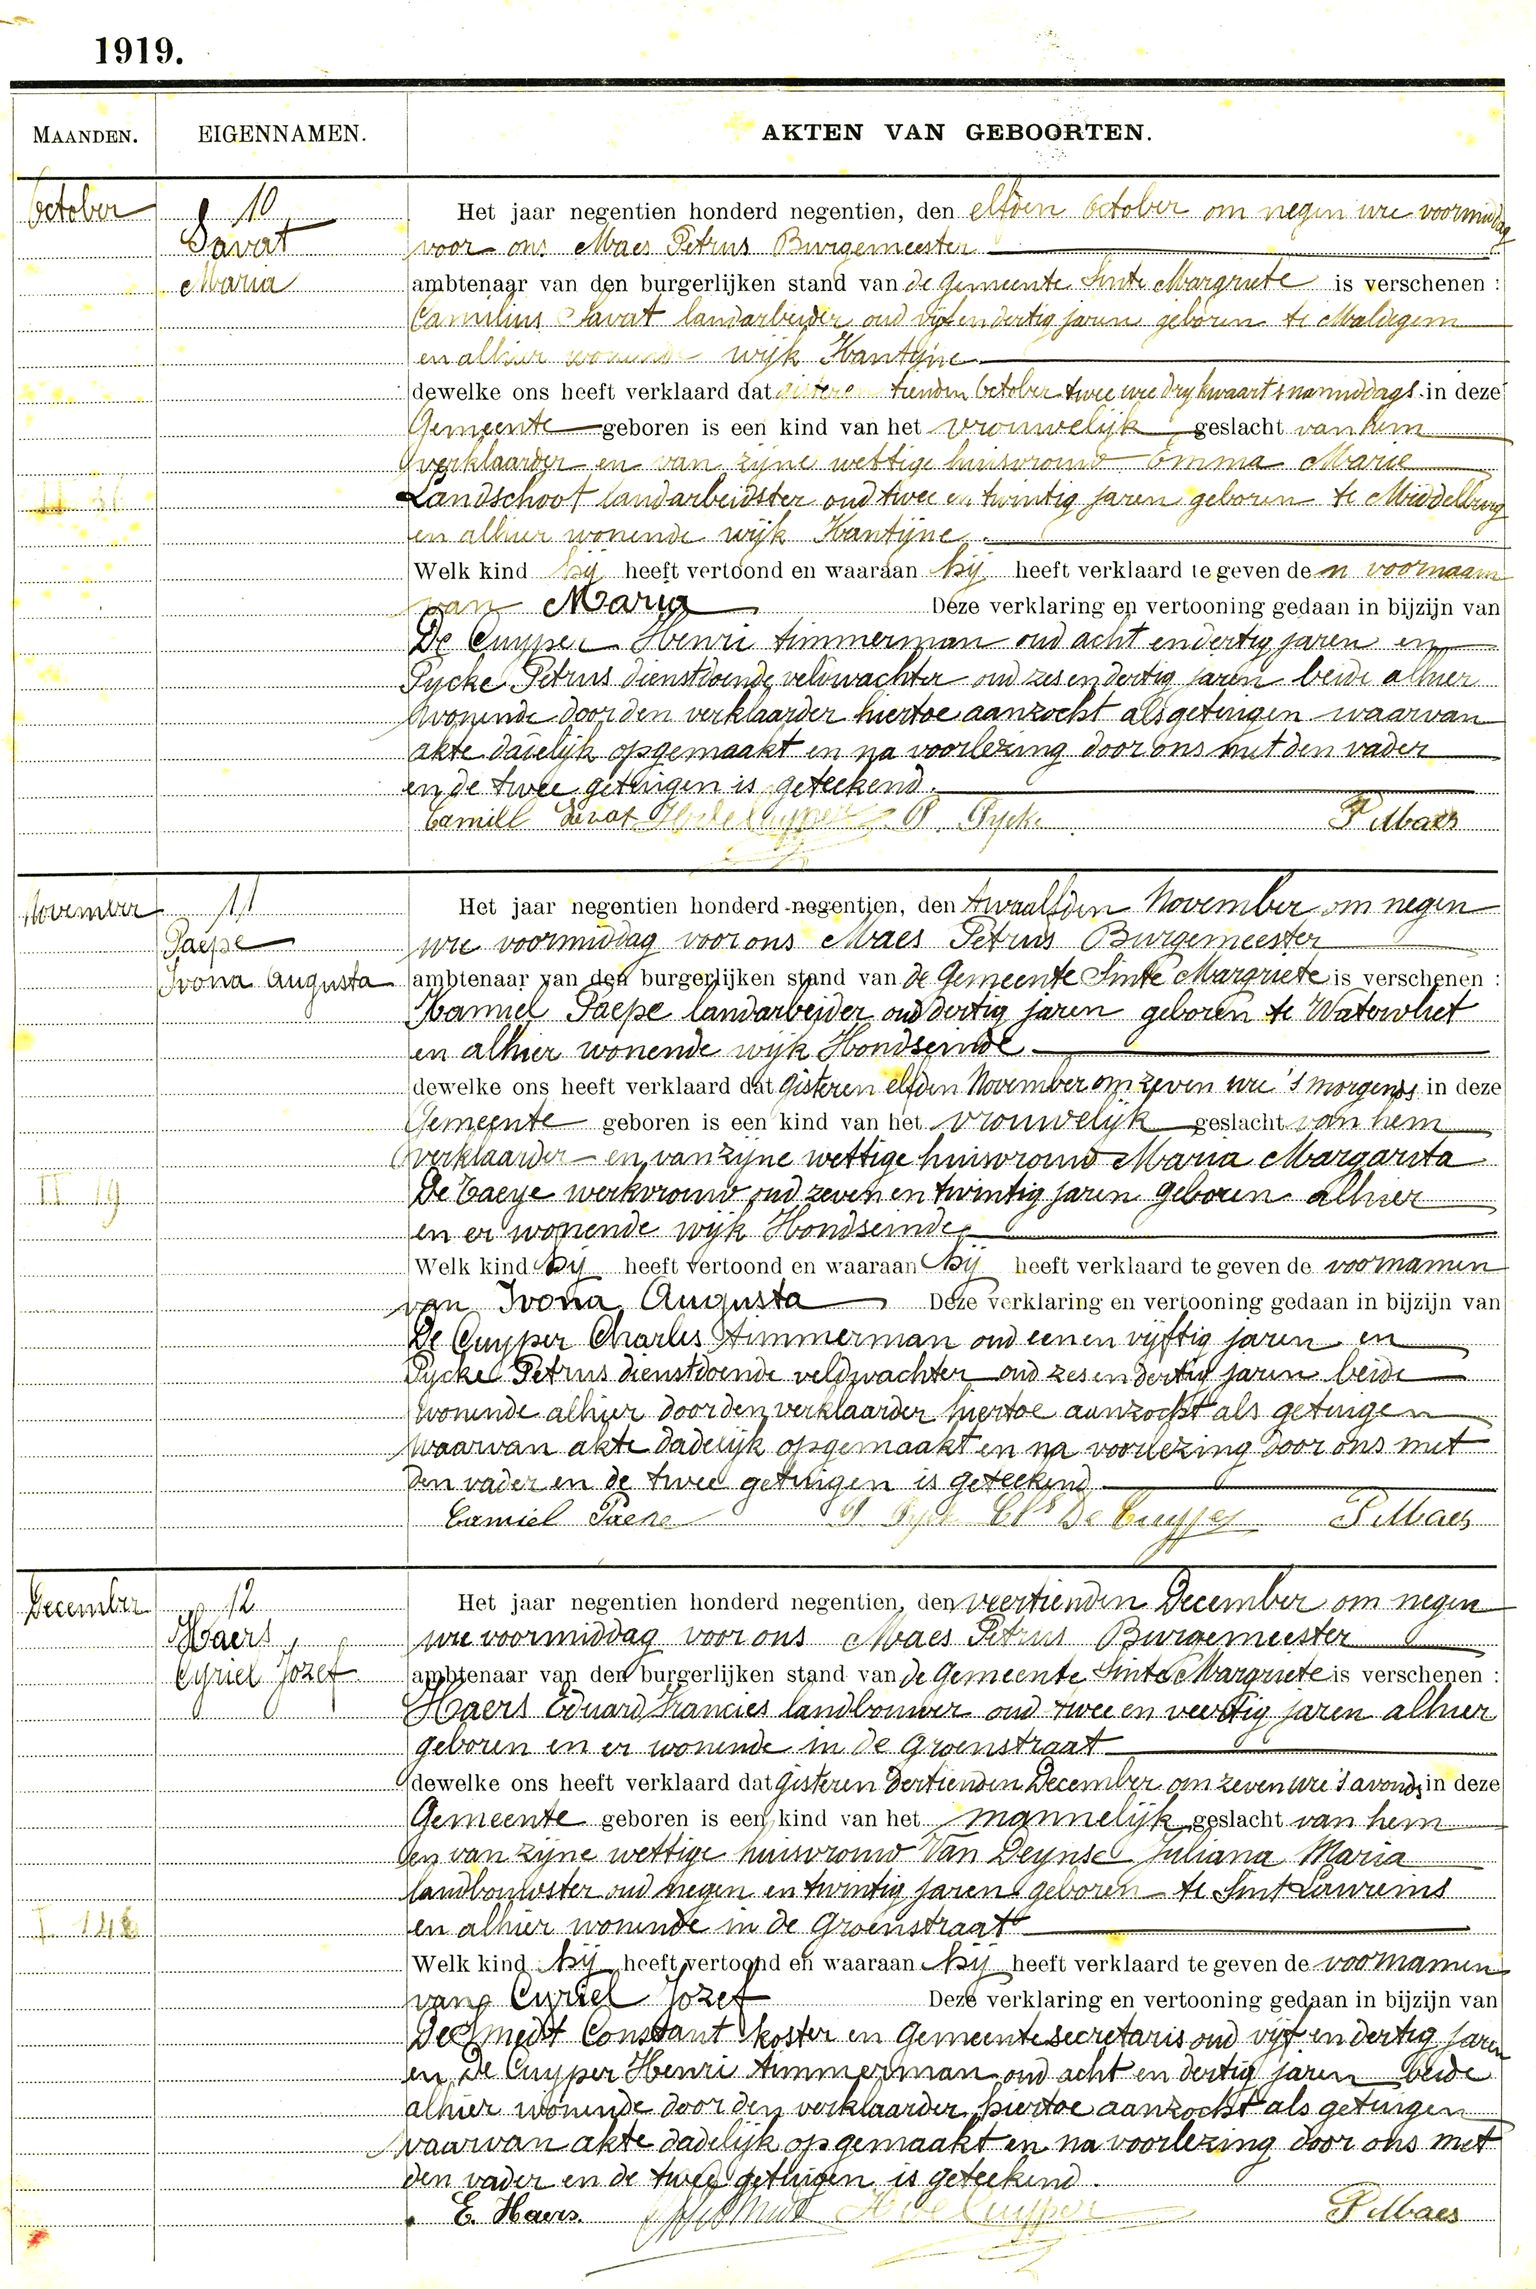 1919.
MAANDEN. EIGENNAMEN. AKTEN VAN GEBOORTEN.
October
10
Savat
Maria
Het jaar negentien honderd negentien, den elfden October om negen ure voormiddag
voor ons Maes Petrus Burgemeester
ambtenaar van den burgerlijken stand van de Gemeente Sinte Margriete is verschenen :
Camilius Savat landarbeider oud vijf en dertig jaren geboren te Maldegem
en alhier wonende wijk Kantijne
dewelke ons heeft verklaard dat gisteren tienden October twee ure dry kwaart 's namiddags in deze
Gemeente geboren is een kind van het vrouwelijk geslacht van hem
verklaarder en van zijne wettige huisvrouw Emma Marie
Landschoot landarbeidster oud twee en twintig jaren geboren te Middelburg
en alhier wonende wijk Kantijne.
Welk kind hij heeft vertoond en waaraan hij heeft verklaard te geven de n voornaam
van Maria Deze verklaring en vertooning gedaan in bijzijn van
De Cuyper Henri timmerman oud acht en dertig jaren en
Pycke Petrus dienstdoende veldwachter oud zes en dertig jaren beide alhier
wonende door den verklaarder hiertoe aanzocht als getuigen waarvan
akte dadelijk opgemaakt en na voorlezing door ons met den vader
en de twee getuigen is geteekend.
Camill Savat H De Cuyper P. Pycke P Maes
November
11
Paepe
Ivona Augusta
II 19
Het jaar negentien honderd negentien, den twaalfden November om negen
ure voormiddag voor ons Maes Petrus Burgemeester
ambtenaar van den burgerlijken stand van de Gemeente Sinte Margriete is verschenen :
Kamiel Paepe landarbeider oud dertig jaren geboren te Watervliet
en alhier wonende wijk Hondseinde
dewelke ons heeft verklaard dat gisteren elfden November om zeven ure 's morgends in deze
Gemeente geboren is een kind van het vrouwelijk geslacht van hem
verklaarder en van zijne wettige huisvrouw Maria Margarita
De Taeye werkvrouw oud zeven en twintig jaren geboren alhier
en er wonende wijk Hondseinde
Welk kind hij heeft vertoond en waaraan hij heeft verklaard te geven de voornamen
van Ivona Augusta Deze verklaring en vertooning gedaan in bijzijn van
De Cuyper Charles timmerman oud een en vijftig jaren en
Pycke Petrus dienstdoende veldwachter oud zes en dertig jaren beide
wonende alhier door den verklaarder hiertoe aanzocht als getuigen
waarvan akte dadelijk opgemaakt en na voorlezing door ons met
den vader en de twee getuigen is geteekend
Camiel Paepe P Pycke Ch's De Cuyper P Maes
December
12
Haers
Cyriel Jozef
Het jaar negentien honderd negentien, den veertienden December om negen
ure voormiddag voor ons Maes Petrus Burgemeester
ambtenaar van den burgerlijken stand van de Gemeente Sinte Margriete is verschenen :
Haers Eduard Francies landbouwer oud twee en veertig jaren alhier
geboren en er wonende in de Groenstraat
dewelke ons heeft verklaard dat gisteren dertienden December om zeven ure 's avonds in deze
Gemeente geboren is een kind van het mannelijk geslacht van hem
en van zijne wettige huisvrouw Van Deynse Juliana Maria
landbouwster oud negen en twintig jaren geboren te Sint Laureins
en alhier wonende in de Groenstraat
Welk kind hij heeft vertoond en waaraan hij heeft verklaard te geven de voornamen
van Cyriel Jozef Deze verklaring en vertooning gedaan in bijzijn van
De Smedt Constant koster en Gemeentesecretaris oud vijf en dertig jaren
en De Cuyper Henri timmerman oud acht en dertig jaren beide
alhier wonende door den verklaarder hiertoe aanzocht als getuigen
waarvan akte dadelijk opgemaakt en na voorlezing door ons met
den vader en de twee getuigen is geteekend.
E. Haers. H De Cuyper P Maes